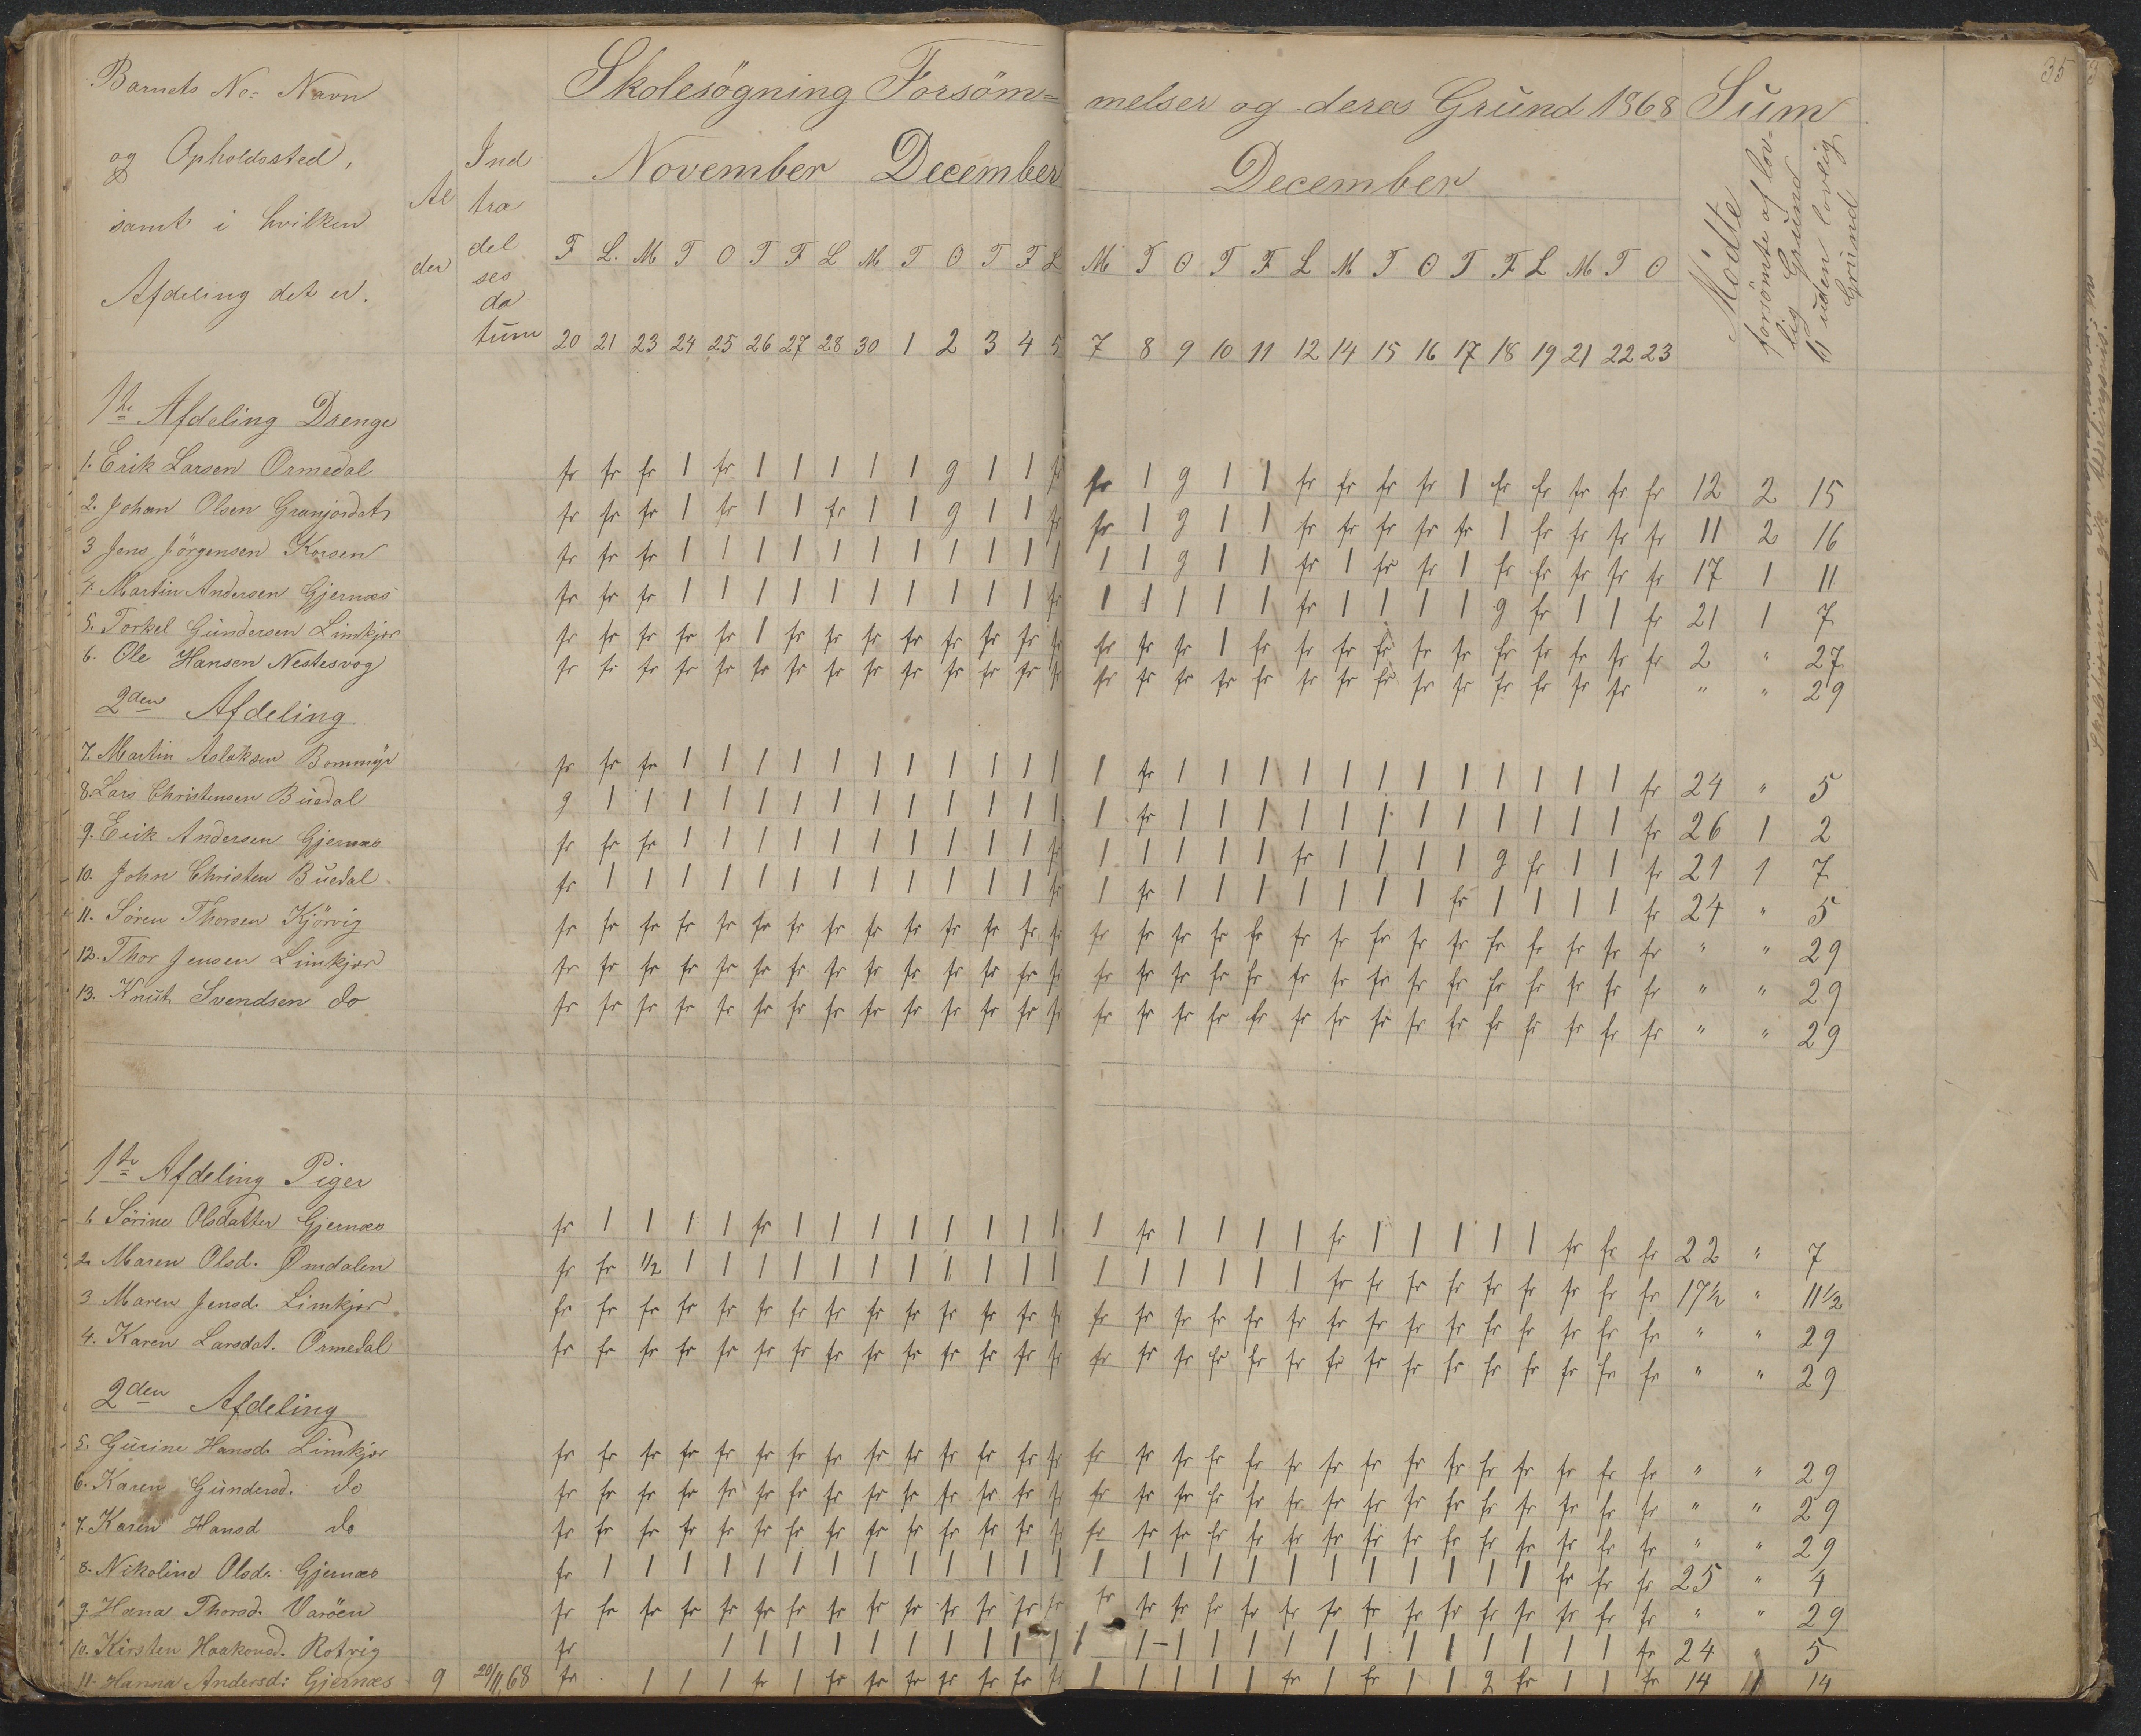 Barnets No= Navn
og Opholdssted,
samt i hvilken
Afdeling det er.
Al
der
Ind
tra
del
ses
da
tum
Skolesøgning Forsöm=
melser og deres Grund 1868
Sum
35
November December
December
Mødte
forsömte af lov-
lig Grund
uden lovlig
Grund
F L. M T O T F L M T O T F L M T O T F L M T O T F L M T O
20 21 23 24 25 26 27 28 30 1 2 3 4 5 7 8 9 10 11 12 14 15 16 17 18 19 21 22 23
1te Afdeling Drenge
1. Erik Larsen Ormedal fr fr fr 1 fr 1 1 1 1 1 g 1 1 fr fr 1 g 1 1 fr fr fr fr 1 fr fr fr fr fr 12 2 15
2. Johan Olsen fr fr fr 1 fr 1 1 fr 1 1 g 1 1 fr fr 1 g 1 1 fr fr fr fr fr 1 fr fr fr fr 11 2 16
3 Jens Jörgensen Korsen fr fr fr 1 1 1 1 1 1 1 1 1 1 1 1 1 g 1 1 fr 1 fr fr 1 fr fr fr fr fr 17 1 11
4. Martin Andersen Gjernæs fr fr fr 1 1 1 1 1 1 1 1 1 1 fr 1 1 1 1 1 fr 1 1 1 1 g fr 1 1 fr 21 1 7
5. Torkel Gundersen Limkjær fr fr fr fr fr 1 fr fr fr fr fr fr fr fr fr fr fr 1 fr fr fr fr fr fr fr fr fr fr fr 2 " 27
6. Ole Hansen Nestesvog fr fr fr fr fr fr fr fr fr fr fr fr fr fr fr fr fr fr fr fr fr fr fr fr fr fr fr fr " " 29
2den Afdeling
7. Martin Aslaksen Bommyr fr fr fr 1 1 1 1 1 1 1 1 1 1 1 1 fr 1 1 1 1 1 1 1 1 1 1 1 1 fr 24 " 5
8. Lars Christensen Buedal g 1 1 1 1 1 1 1 1 1 1 1 1 1 1 fr 1 1 1 1 1 1 1 1 1 1 1 1 fr 26 1 2
9. Erik Andersen Gjernæs fr fr fr 1 1 1 1 1 1 1 1 1 1 fr 1 1 1 1 1 fr 1 1 1 1 g fr 1 1 fr 21 1 7
10. John Christen Buedal fr 1 1 1 1 1 1 1 1 1 1 1 1 fr 1 fr 1 1 1 1 1 1 1 fr 1 1 1 1 fr 24 " 5
11. Sören Thorsen Kjörvig fr fr fr fr fr fr fr fr fr fr fr fr fr fr fr fr fr fr fr fr fr fr fr fr fr fr fr fr fr " " 29
12. Thor Jensen Limkjær fr fr fr fr fr fr fr fr fr fr fr fr fr fr fr fr fr fr fr fr fr fr fr fr fr fr fr fr fr " " 29
13. Knut Svendsen do fr fr fr fr fr fr fr fr fr fr fr fr fr fr fr fr fr fr fr fr fr fr fr fr fr fr fr fr fr " " 29
1te Afdeling Piger
1. Sörine Olsdatter Gjernæs fr 1 1 1 1 fr 1 1 1 1 1 1 1 1 1 fr 1 1 1 1 fr 1 1 1 1 1 fr fr fr 22 " 7
2. Maren Olsd. Ømdalen fr fr 1/2 1 1 1 1 1 1 1 1 1 1 1 1 1 1 1 1 1 fr fr fr fr fr fr fr fr fr 17 1/2 " 11 1/2
3 Maren Jensd. Limkjær fr fr fr fr fr fr fr fr fr fr fr fr fr fr fr fr fr fr fr fr fr fr fr fr fr fr fr fr fr " " 29
4. Karen Larsdat. Ormedal fr fr fr fr fr fr fr fr fr fr fr fr fr fr fr fr fr fr fr fr fr fr fr fr fr fr fr fr fr " " 29
2den Afdeling
5. Gurine Hansd. Limkjær fr fr fr fr fr fr fr fr fr fr fr fr fr fr fr fr fr fr fr fr fr fr fr fr fr fr fr fr fr " " 29
6. Karen Gundersd. do fr fr fr fr fr fr fr fr fr fr fr fr fr fr fr fr fr fr fr fr fr fr fr fr fr fr fr fr fr " " 29
7. Karen Hansd do fr fr fr fr fr fr fr fr fr fr fr fr fr fr fr fr fr fr fr fr fr fr fr fr fr fr fr fr fr " " 29
8. Nikoline Olsd. Gjernæs fr 1 1 1 1 1 1 1 1 1 1 1 1 1 1 1 1 1 1 1 1 1 1 1 1 1 fr fr fr 25 " 4
9. Hana Thorsd. Varöen fr fr fr fr fr fr fr fr fr fr fr fr fr fr fr fr fr fr fr fr fr fr fr fr fr fr fr fr fr " " 29
10. Kirsten Haakonsd. Rotvig fr 1 1 1 1 1 1 1 1 1 1 1 1 - 1 1 1 1 1 1 1 1 1 1 1 1 fr 24 " 5
11. Hanna Andersd: Gjernæs 9 20/11 68 fr 1 1 1 fr 1 fr fr fr fr fr fr fr 1 1 1 1 1 fr 1 fr 1 1 g fr 1 1 fr 14 1 14